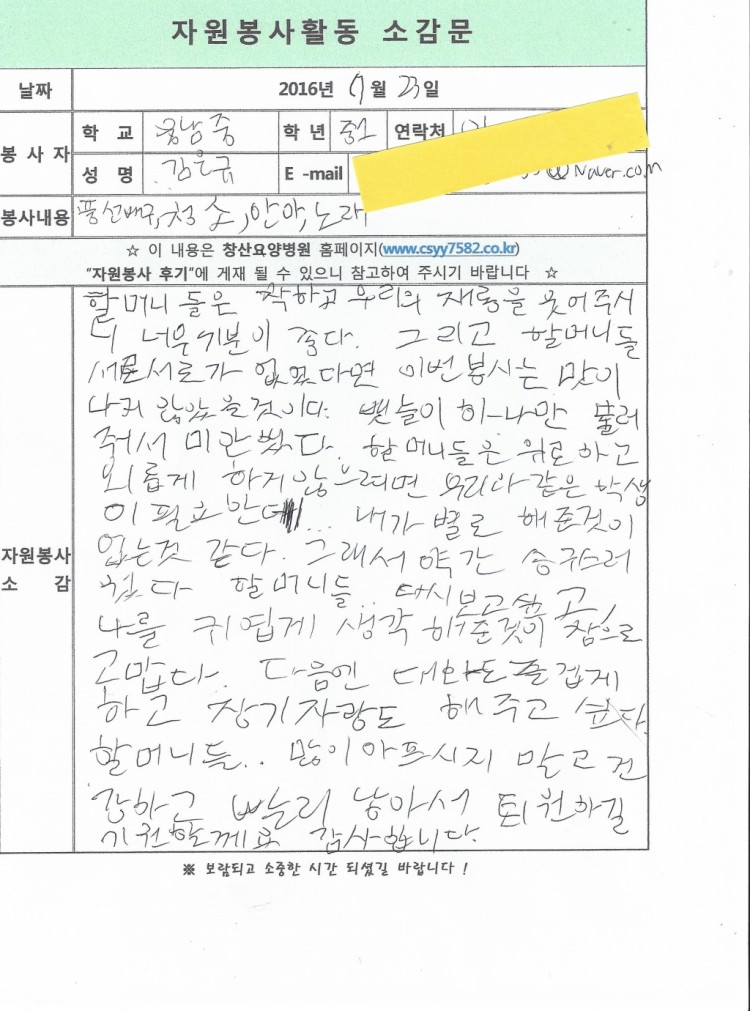 자원봉사활동 소감문
날짜 2016년 7월 23일
봉사자 학 교 웅남중 학 년 중1 연락처
성 명 김은규 E-mail @Naver.com
봉사내용 풍선배구, 청소, 안마, 노래
☆ 이 내용은 창산요양병원 홈페이지(www.csyy7582.co.kr)
“자원봉사 후기”에 게재 될 수 있으니 참고하여 주시기 바랍니다 ☆
자원봉사 소 감
할머니 들은 착하고 우리의 재롱을 웃어주시
니 너무 기분이 좋다. 그리고 할머니들
서로가 없었다면 이번봉사는 맛이
나지 않았을것이다. 뱃놀이 하나만 불러
줘서 미안했다. 할머니들은 위로하고
외롭게 하지않으려면 우리와 같은 학생
이 필요한데 ... 내가 별로 해준것이
없는것 같다. 그래서 약간 송구스러
웠다 할머니들.. 다시보고싶고,
나를 귀엽게 생각 해준것이 참으로
고맙다. 다음엔 대화도 즐겁게
하고 장기자랑도 해주고 싶다.
할머니들.. 많이아프시지 말고 건
강하고 빠늘리 낳아서 퇴원하길
기원할께요 감사합니다.
※ 보람되고 소중한 시간 되셨길 바랍니다 !